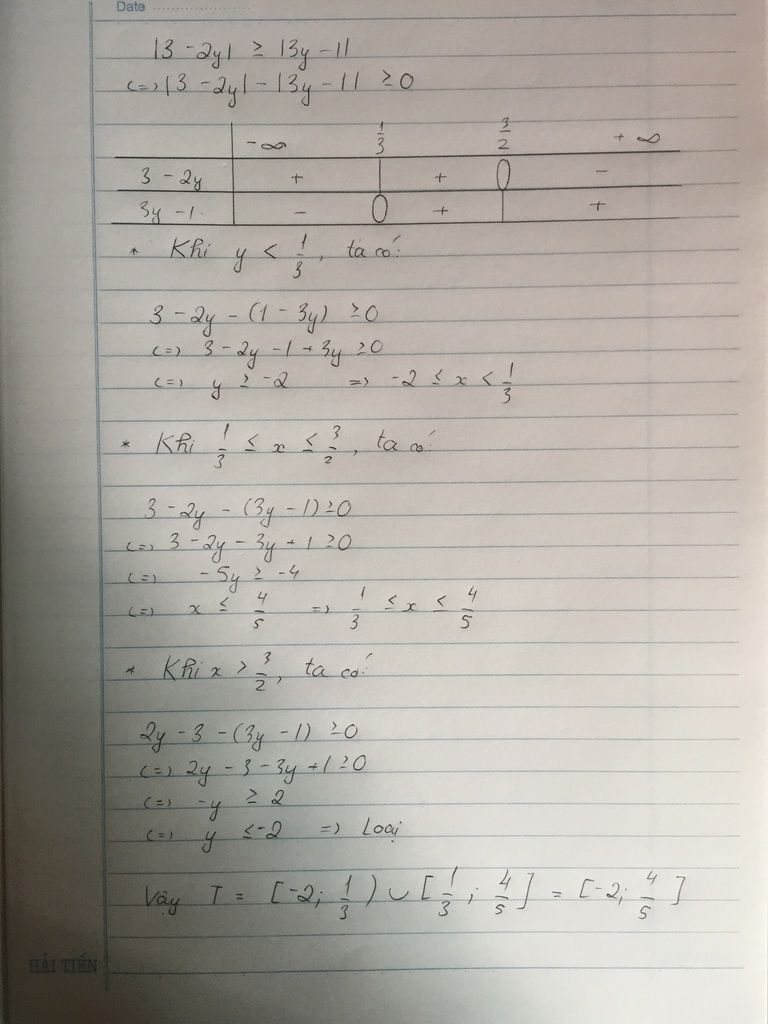 Date
|3 - 2y| ≥ |3y - 1|
<=> |3 - 2y| - |3y - 1| ≥ 0
-∞ 1/3 3/2 +∞
3 - 2y + | + 0 -
3y - 1 - 0 + | +
* Khi y < 1/3, ta có:
3 - 2y - (1 - 3y) ≥ 0
<=> 3 - 2y - 1 + 3y ≥ 0
<=> y ≥ -2 => -2 ≤ x < 1/3
* Khi 1/3 ≤ x ≤ 3/2, ta có:
3 - 2y - (3y - 1) ≥ 0
<=> 3 - 2y - 3y + 1 ≥ 0
<=> -5y ≥ -4
<=> x ≤ 4/5 => 1/3 ≤ x ≤ 4/5
* Khi x > 3/2, ta có:
2y - 3 - (3y - 1) ≥ 0
<=> 2y - 3 - 3y + 1 ≥ 0
<=> -y ≥ 2
<=> y ≤ -2 => Loại
Vậy T = [-2; 1/3) ∪ [1/3; 4/5] = [-2; 4/5]
HẢI TIẾN